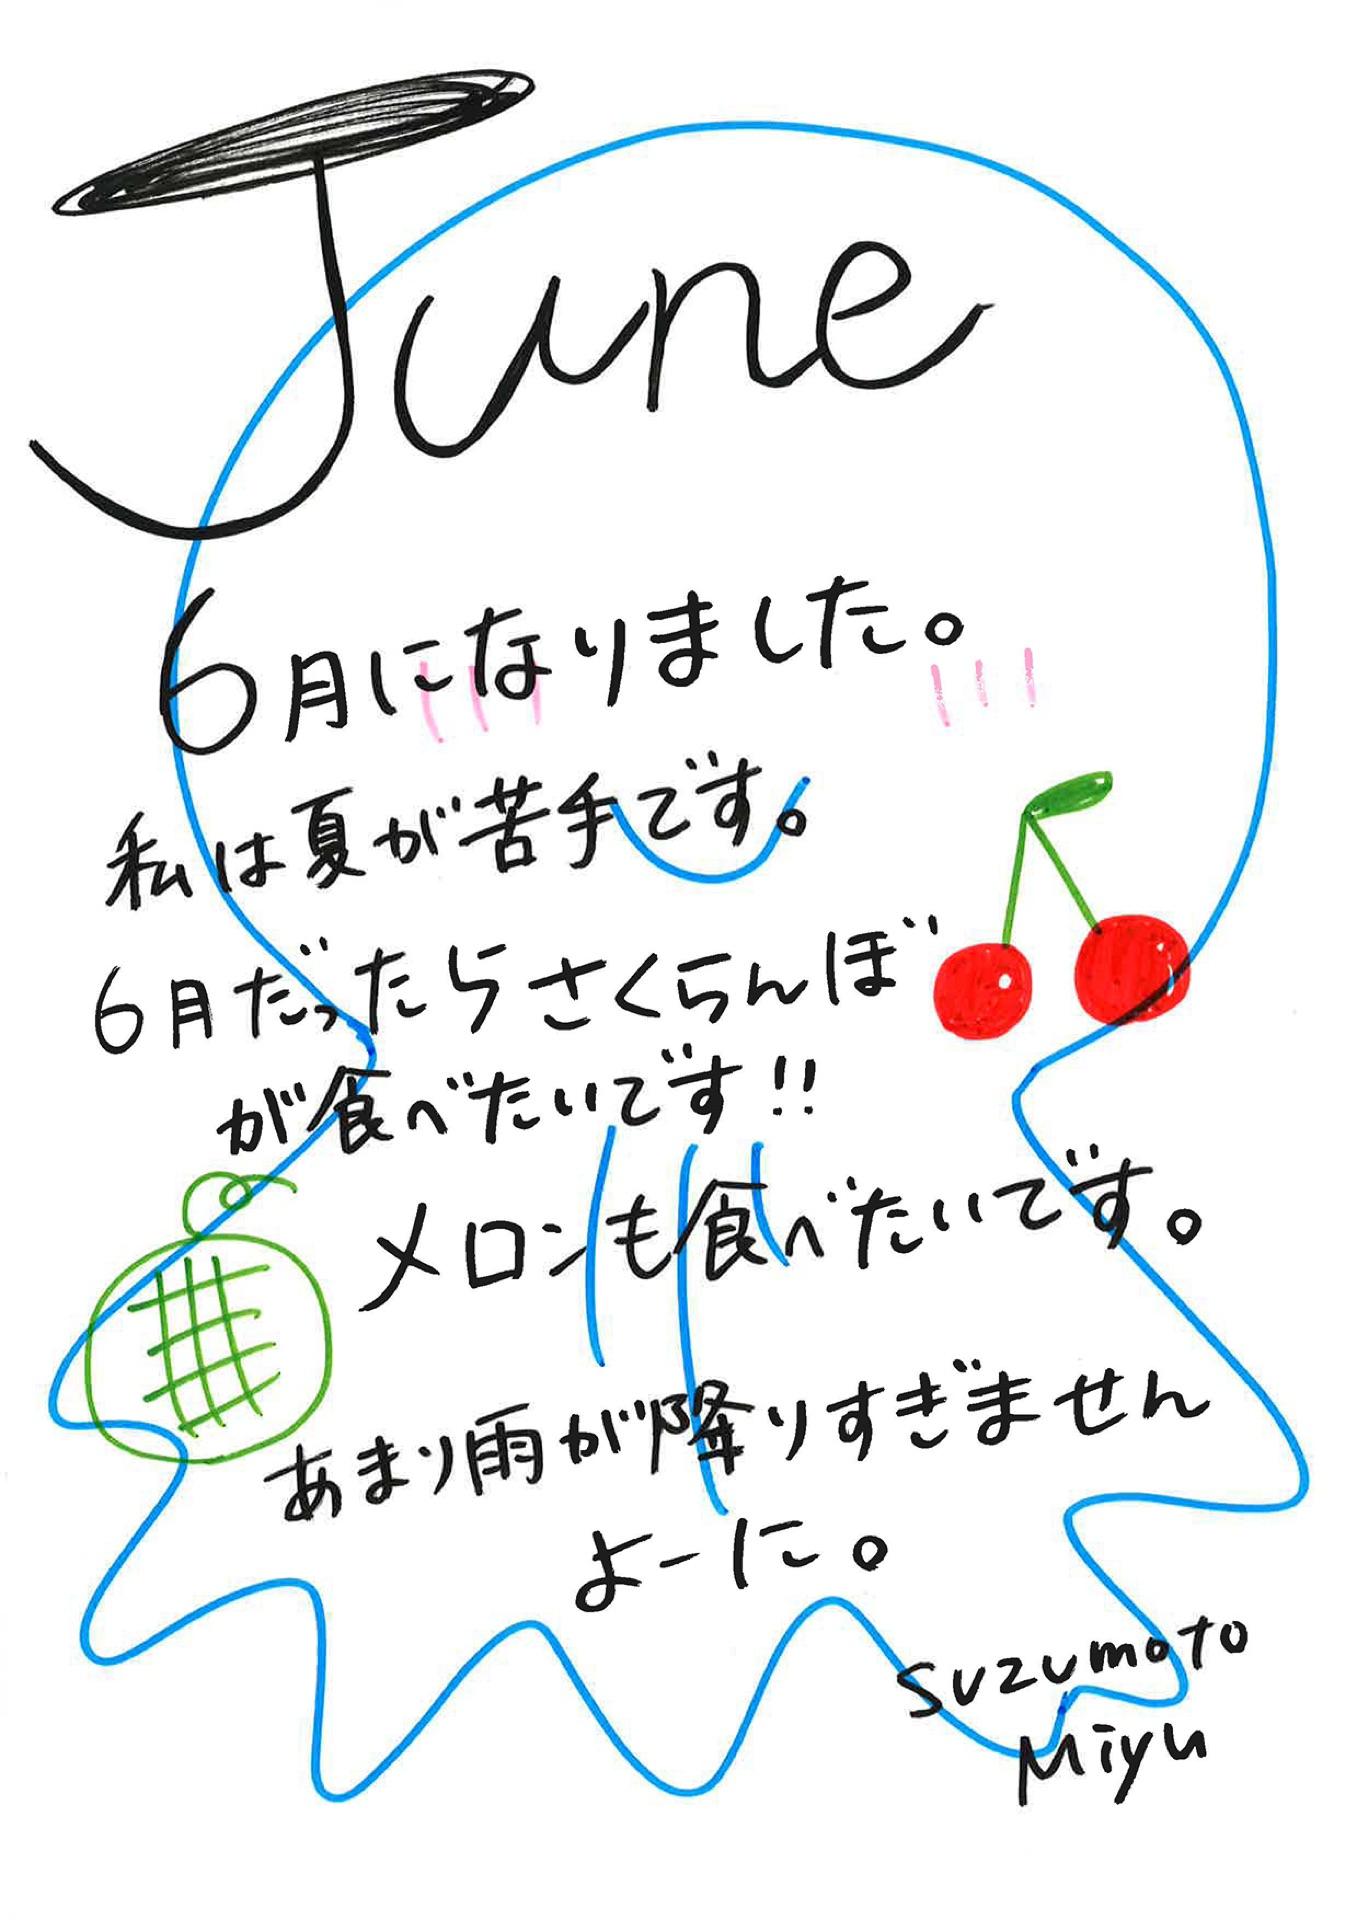 June
6月になりました。
私は夏が苦手です。
6月だったらさくらんぼ
が食べたいです!!
メロンも食べたいです。
あまり雨が降りすぎません
よーに。
Suzumoto
Miyu